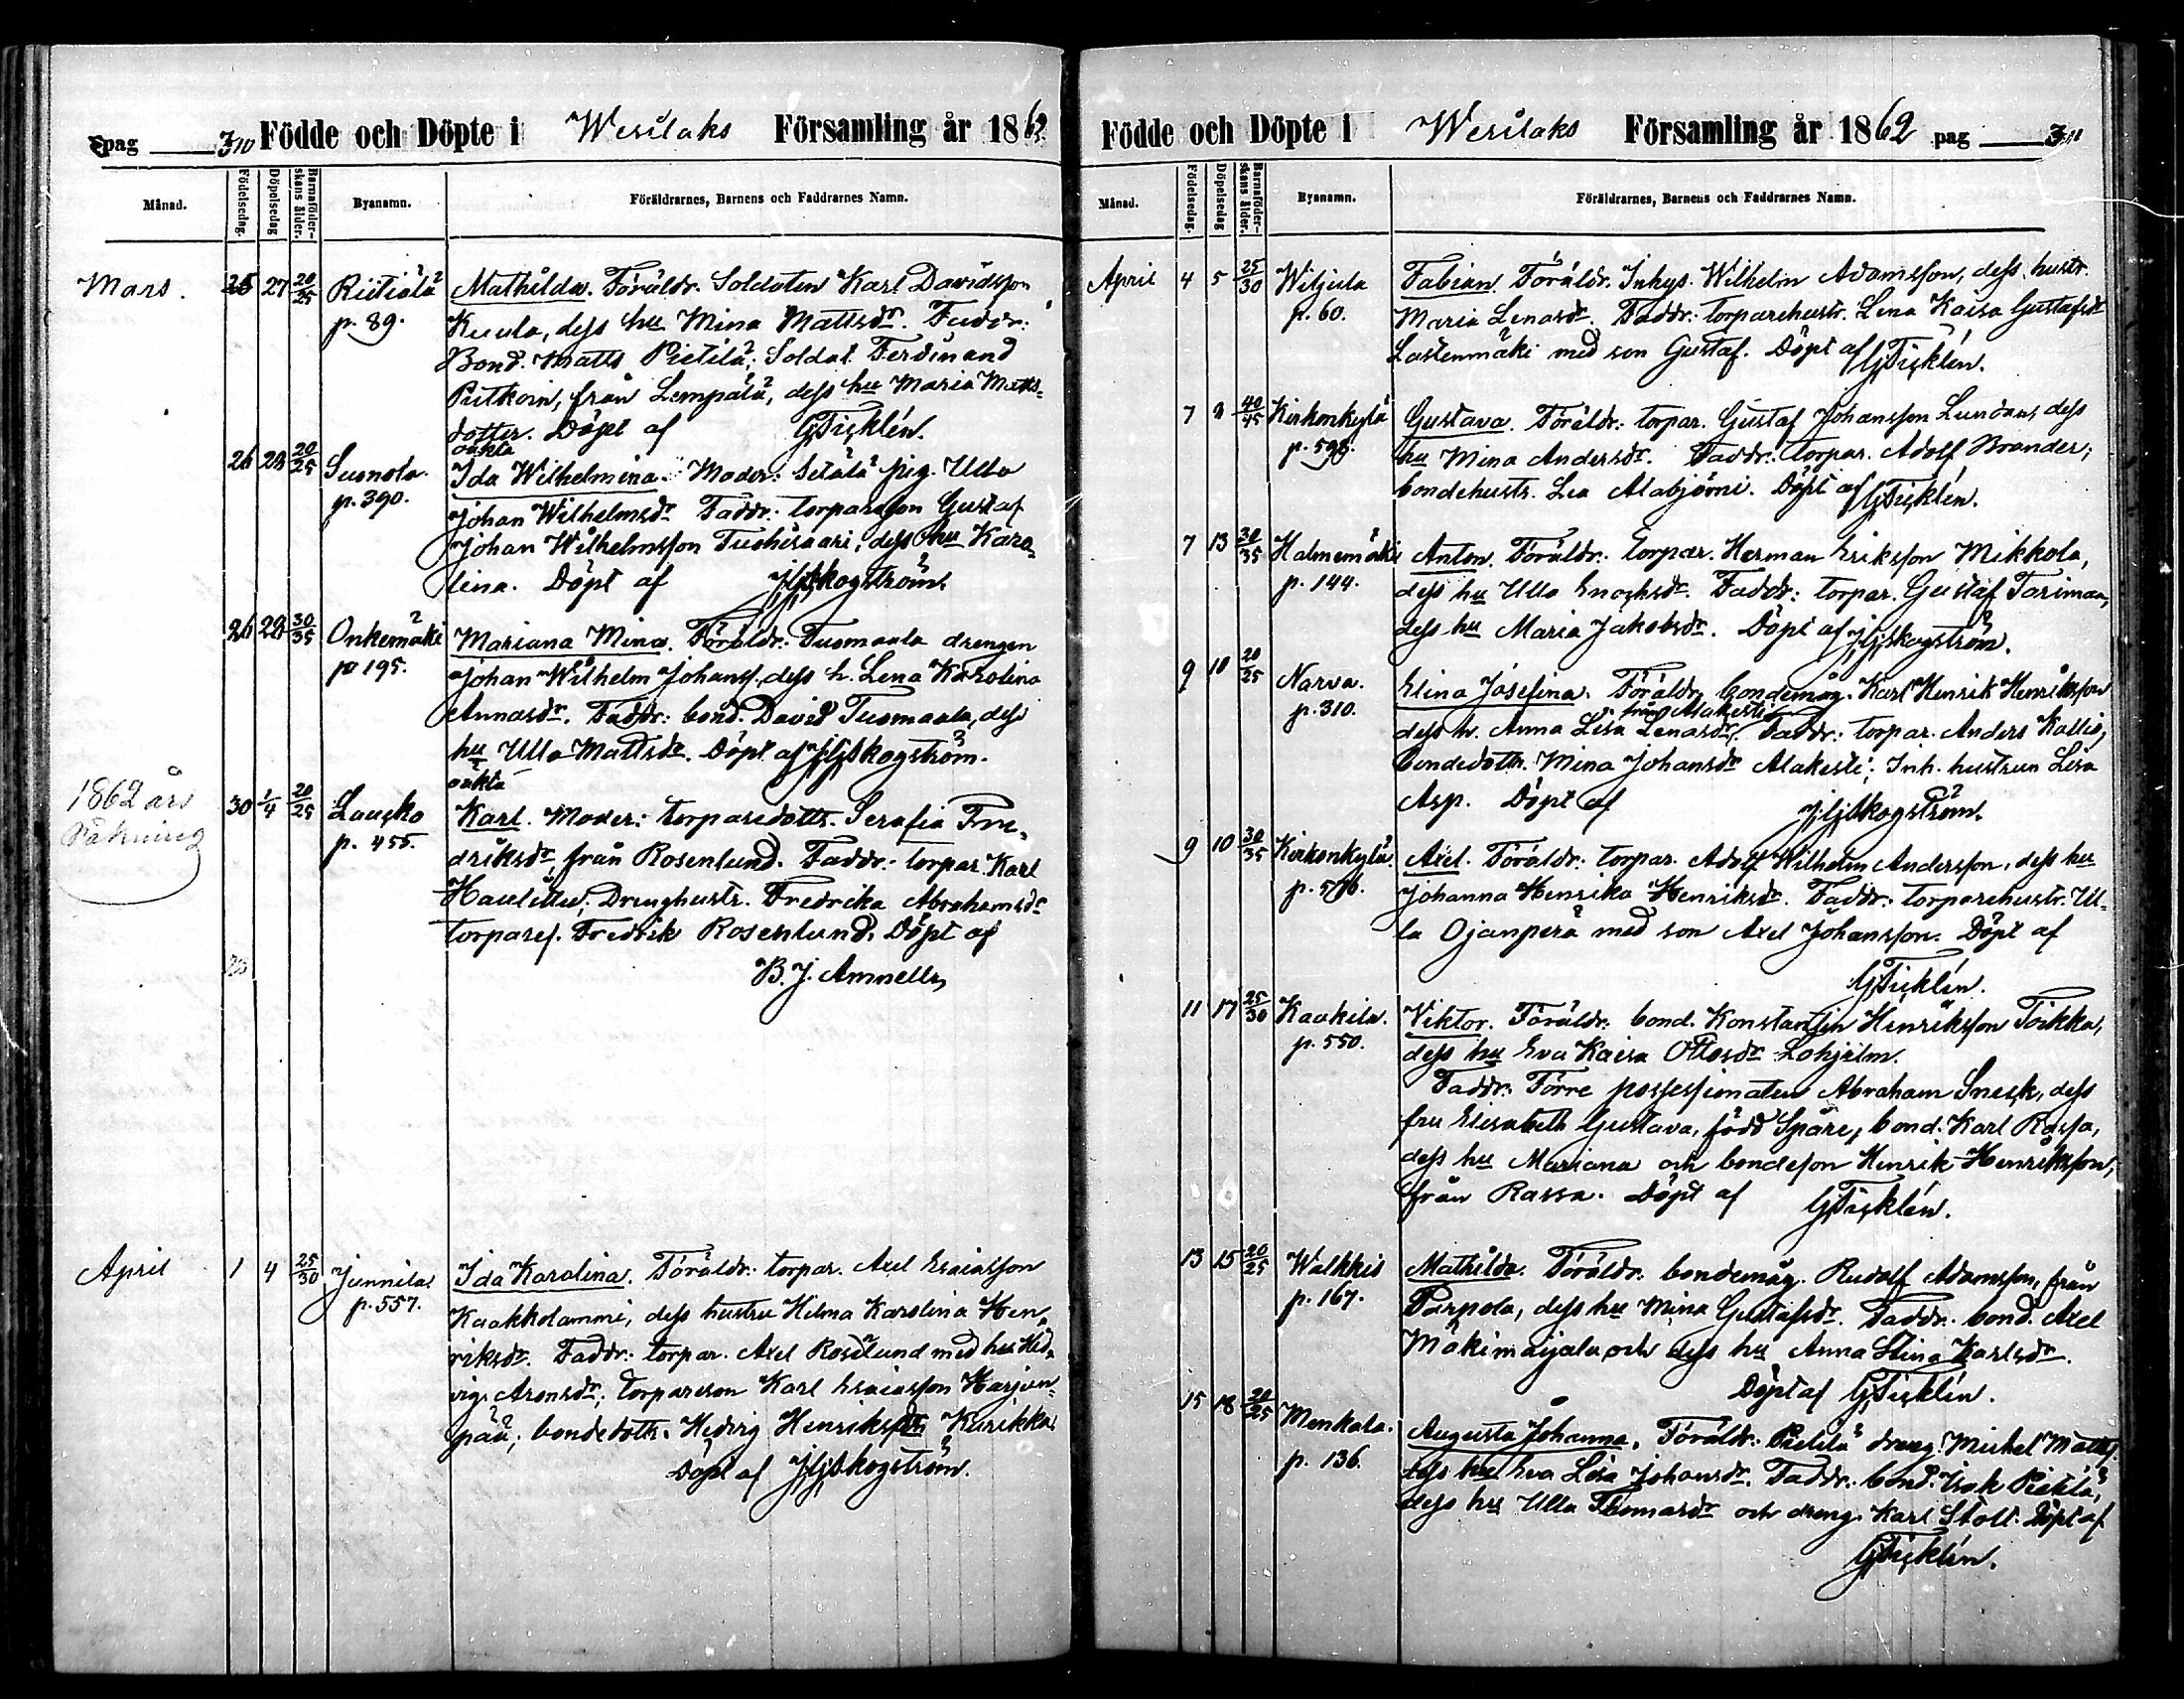 pag 310 Födde och Döpte i Wesilaks Församling år 1862
Månad. Födelsedag. Döpelsedag Barnaföderskans ålder. Byanamn. Föräldrarnes, Barnens och Faddrarnes Namn.
Mars. 25 27 20/25 Riitiälä Mathilda. Föräldr. Soldaten Karl Davidsson
p. 89. Kuula, dess hu Mina Mattsdr. Faddr:
Bond. Matts Pietilä; Soldat Ferdinand
Putkoin, från Lempälä, dess hu Maria Matts-
dotter. Döpt af G Ticklén.
oäkta
26 28 20/25 Suonola Ida Wilhelmina. Moder: Setälä pig. Ulla
p. 390. Johan Wilhelmsdr Faddr: torpareson Gustaf
Johan Wilhelmsson Tuohisaari, dess hu Karo-
lina. Döpt af Skogström.
26 28 30/35 Onkemäki Mariana Mina. Föräldr: Tuomaala drengen
p. 195. Johan Wilhelm Johanss. dess h. Lena Karolina
Annasdr. Faddr: bond. David Tuomaala, dess
hu Ulla Mattsdr. Döpt af Skogström.
oäkta
1862 års 30 1/4 20/25 Laucko Karl. Moder: torparedottr. Serafia Fre-
p. 455. driksdr, från Rosenlund. Faddr: torpar. Karl
Drenghustr. Fredrika Abrahamsdr
torpares. Fredrik Rosenlund. Döpt af
B. J. Amnell
April 1 4 25/30 Junnila Ida Karolina. Föräldr: torpar. Axel Esaiasson
p. 557. Kaakkolammi, dess hustru Hilma Karolina Hen-
riksdr. Faddr: torpar. Axel Roselund med hu Hed-
vig Aronsdr; torpareson Karl Esaiasson Harjun-
pää; bondedottr. Hedvig Henriksdr Kurikka
Döpt af Skogström.
Födde och Döpte i Wesilaks Församling år 1862 pag 311
Månad. Födelsedag. Döpelsedag Barnaföderskans ålder. Byanamn. Föräldrarnes, Barnens och Faddrarnes Namn.
April 4 5 25/30 Wiljula Fabian. Föräldr. Inhys. Wilhelm Adamsson, dess hustr.
p. 60. Maria Lenasdr. Faddr: torparehustr. Lena Kaisa Gustafsdr
Lastenmäki med son Gustaf. Döpt af G Ticklén.
7 8 40/45 Kirkonkylä Gustava. Föräldr: torpar. Gustaf Johansson Lundan, dess
hu Mina Andersdr. Faddr: torpar. Adolf Brander;
bondehustr. Lea Alabjörni. Döpt af G Ticklén.
7 13 30/35 Halmemäki Anton. Föräldr: torpar. Herman Eriksson Mikkola,
p. 144. dess hu Ulla Enochsdr. Faddr: torpar. Gustaf Toriman,
dess hu Maria Jakobsdr. Döpt af Skogström.
9 10 20/25 Narva. Elina Josefina. Föräldr. bondemåg. Karl Henrik Henriksson
från Alakesti
p. 310. dess h. Anna Lisa Lenasdr. Faddr: torpar. Anders Kallio;
bondedottr. Mina Johansdr Alakesti; Inh. hustrun Lisa
Asp. Döpt af Skogström.
9 10 30/35 Kirkonkylä Axel. Föräldr: torpar. Adolf Wilhelm Andersson, dess hu
Johanna Henrika Henriksdr. Faddr: torparehustr. Ul-
la Ojanperä med son Axel Johansson. Döpt af
G Ticklén.
11 17 25/30 Kaakila. Viktor. Föräldr: bond. Konstantin Henriksson Toikka,
p. 550. dess hu Eva Kaisa Ottosdr Lohjelm.
Faddr: Förre possessionaten Abraham Sneck, dess
fru Elisabeth Gustava, född Spåre; bond. Karl Rassa,
dess hu Mariana och bondeson Henrik Henriksson,
från Rassa. Döpt af G Ticklén.
13 15 20/25 Walkkis Mathilda. Föräldr: bondemåg. Rudolf Adamsson, från
p. 167. Parpola, dess hu Mina Gustafsdr. Faddr: bond. Axel
Mäkimaijala och dess hu Anna Stina Karlsdr.
Döpt af G Ticklén.
15 18 20/25 Menkala. Augusta Johanna. Föräldr: Pietilä dreng. Michel Matts.
p. 136. dess hu Eva Lisa Johansdr. Faddr: bond. Isak Pietilä,
dess hu Ulla Thomasdr och dreng. Karl Stolt. Döpt af
G Ticklén.